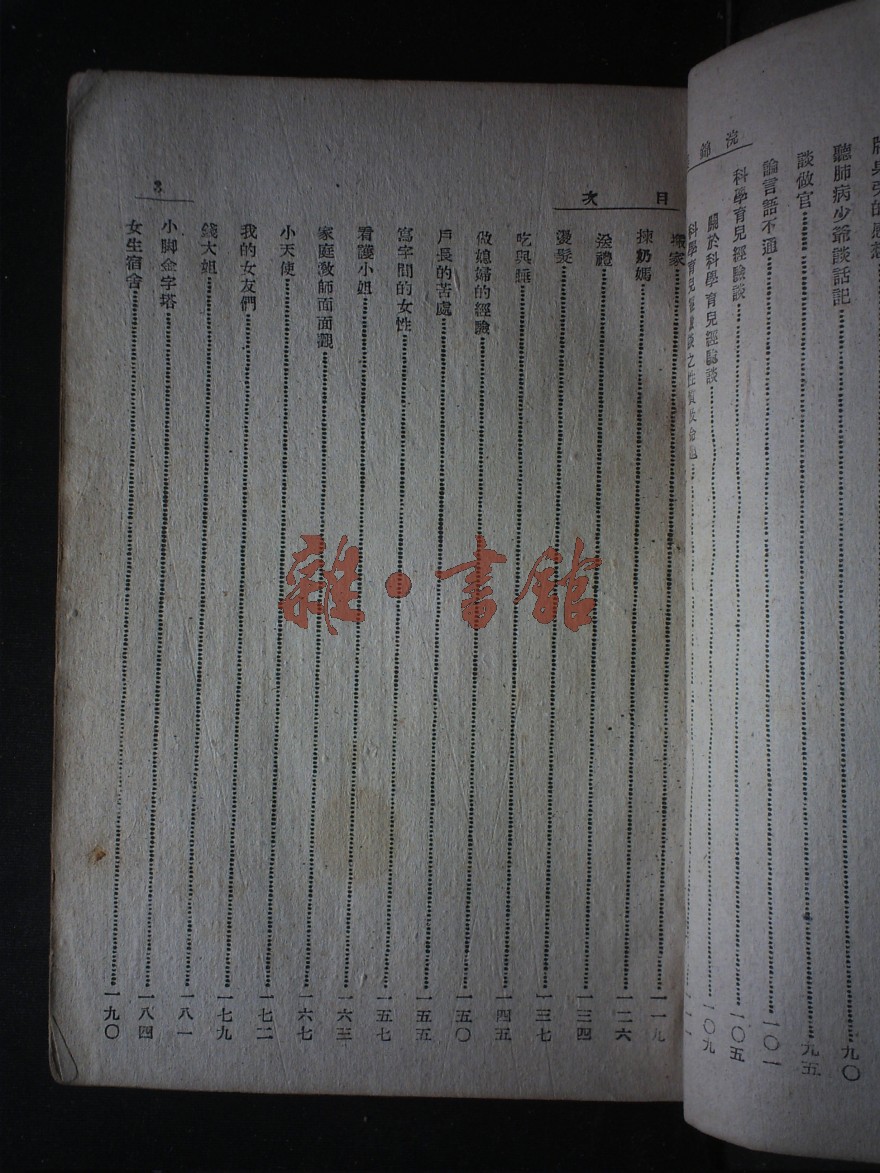 浣錦
聽肺病少爺談話記……九〇
談做官……九五
論言語不通……一〇一
科學育兒經驗談……一〇五
關於科學育兒經驗談……一〇九
科學育兒經驗談之性質
目次
搬家……一一九
揀奶媽……一二六
送禮……一三四
燙髮……一三七
吃與睡……一四五
做媳婦的經驗……一五〇
戶長的苦處……一五五
寫字間的女性……一五七
看護小姐……一六三
家庭教師面面觀……一六七
小天使……一七二
我的女友們……一七九
錢大姐……一八一
小脚金字塔……一八四
女生宿舍……一九〇
3
雜·書館